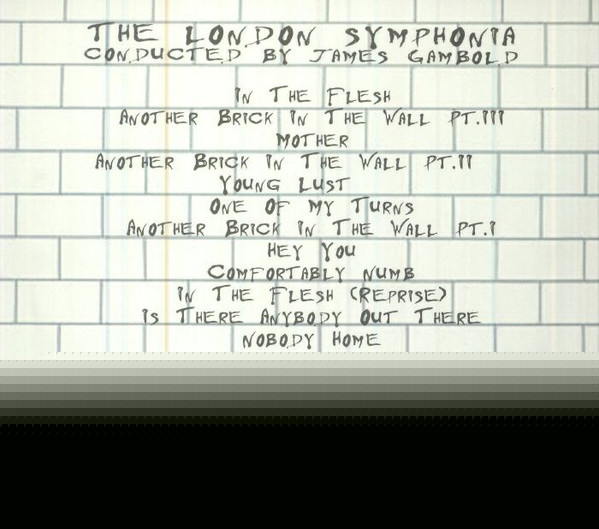 THE LONDON SYMPHONIA
CONDUCTED BY JAMES GAMBOLD
IN THE FLESH
ANOTHER BRICK IN THE WALL PT.III
MOTHER
ANOTHER BRICK IN THE WALL PT.II
YOUNG LUST
ONE OF MY TURNS
ANOTHER BRICK IN THE WALL PT.I
HEY YOU
COMFORTABLY NUMB
IN THE FLESH (REPRISE)
IS THERE ANYBODY OUT THERE
NOBODY HOME